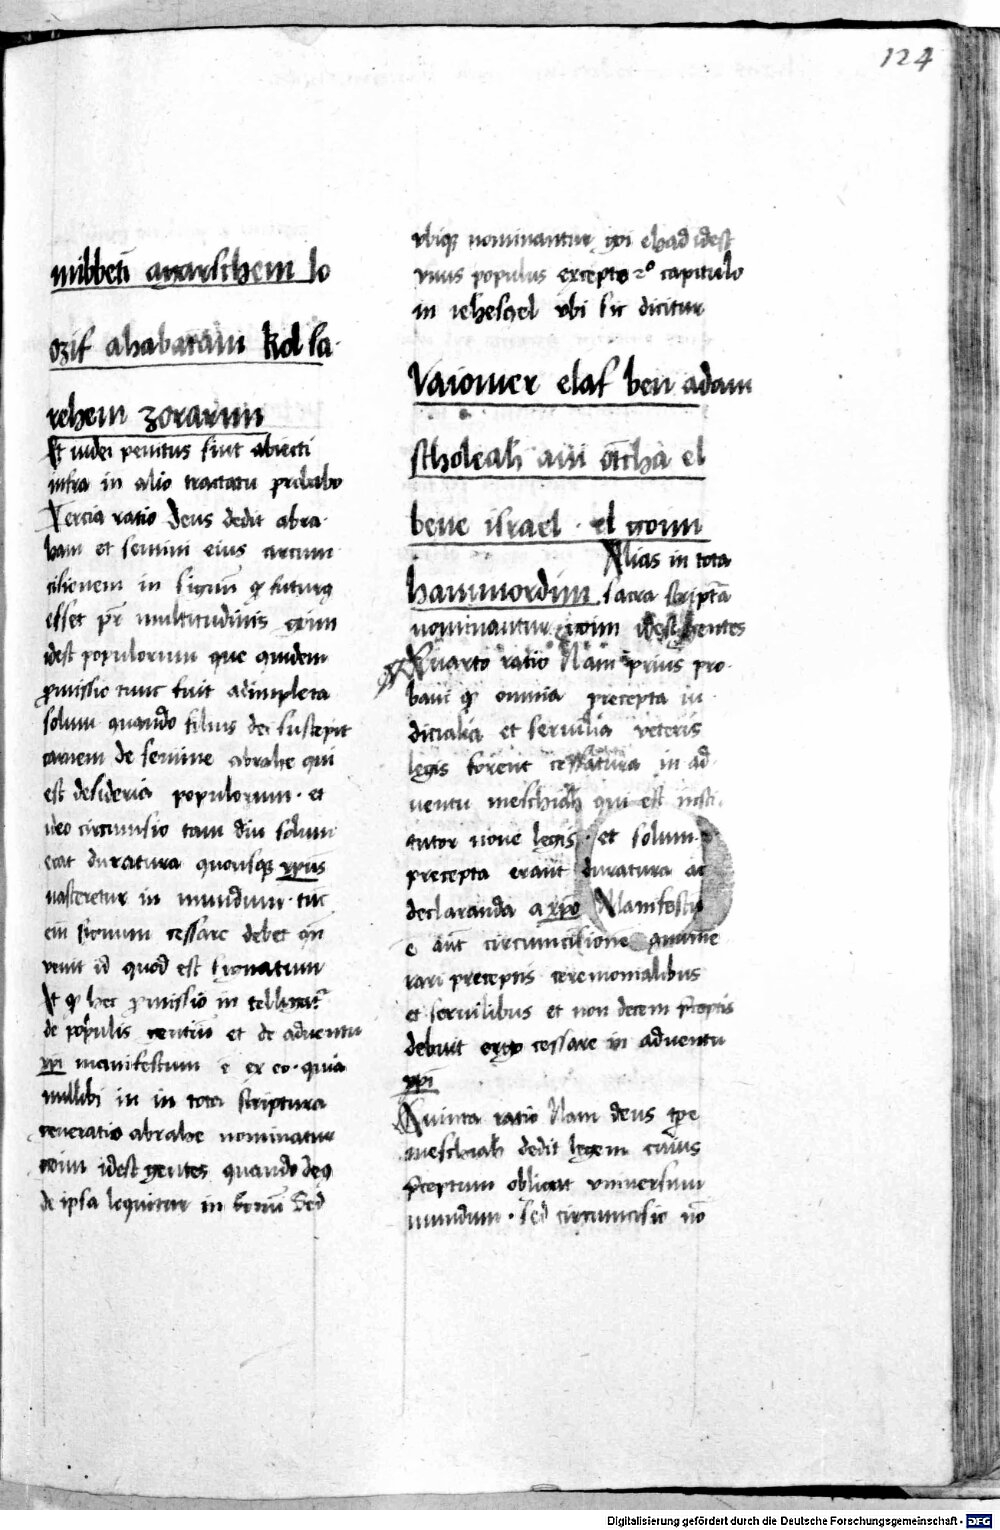 124
mibbeti agarschem lo
ozif ahabatam kol sa-
rehem zorarim
Et iudei penitus sint abiecti
infra in alio tractatu probabo
Tercia ratio Deus dedit abra-
ham et semini eius circum
cisionem in signū qͥ futurꝰ
esset pr̄ multitudinis goim
idest populorum que quidem
ꝓmissio tunc fuit adimpleta
solum quando filius dei suscepit
carnem de semine abrahe qui
est desideria populorum · et
ideo circumsio tam diu solum
erat duratura quousqꝫ xpūs
nasceretur in mundum · tūc
eī signum cessare debet qn̄
venit id quod est signatum
Et qͥ hec ꝓmissio intelligitᷣ
de populis gentiū et de aduentu
xpi manifestum ē ex eo · quia
nullibi in in tota scriptura
generatio abrahe nominatur
goim idest gentes quando deꝰ
de ipsa loquitur in bonū Sed
vbiqꝫ nominantur goi ehad idest
vnus populus excepto 2º capitulo
in iehesqel vbi sic dicitur
Vaiomer elaf ben adam
scholeah ani otcha el
bene israel · el goim
Alias in tota
hammordim sacra scriptā
nominantur goim idest gentes
Quarto ratio Nam prius pro-
baui qͥ omnia precepta iu-
dicialia et seruilia veteris
legis forent cessatura in ad-
uentu meschiah qui est insti-
tutor noue legis · et solum
precepta erant duratura ac
declaranda a xpō Manifestū
ē aūt circumcisionē anume
rari preceptis ceremonialibus
et seruilibus et non decem p̄ceptis
debuit ergo cessare in aduentu
xpi
Quinta ratio Nam deus tp̄e
meschiah dedit legem cuius
p̄ceptum obligat vniuersum
mundum · sed circumcisio nō
Digitalisierung gefördert durch die Deutsche Forschungsgemeinschaft - DFG